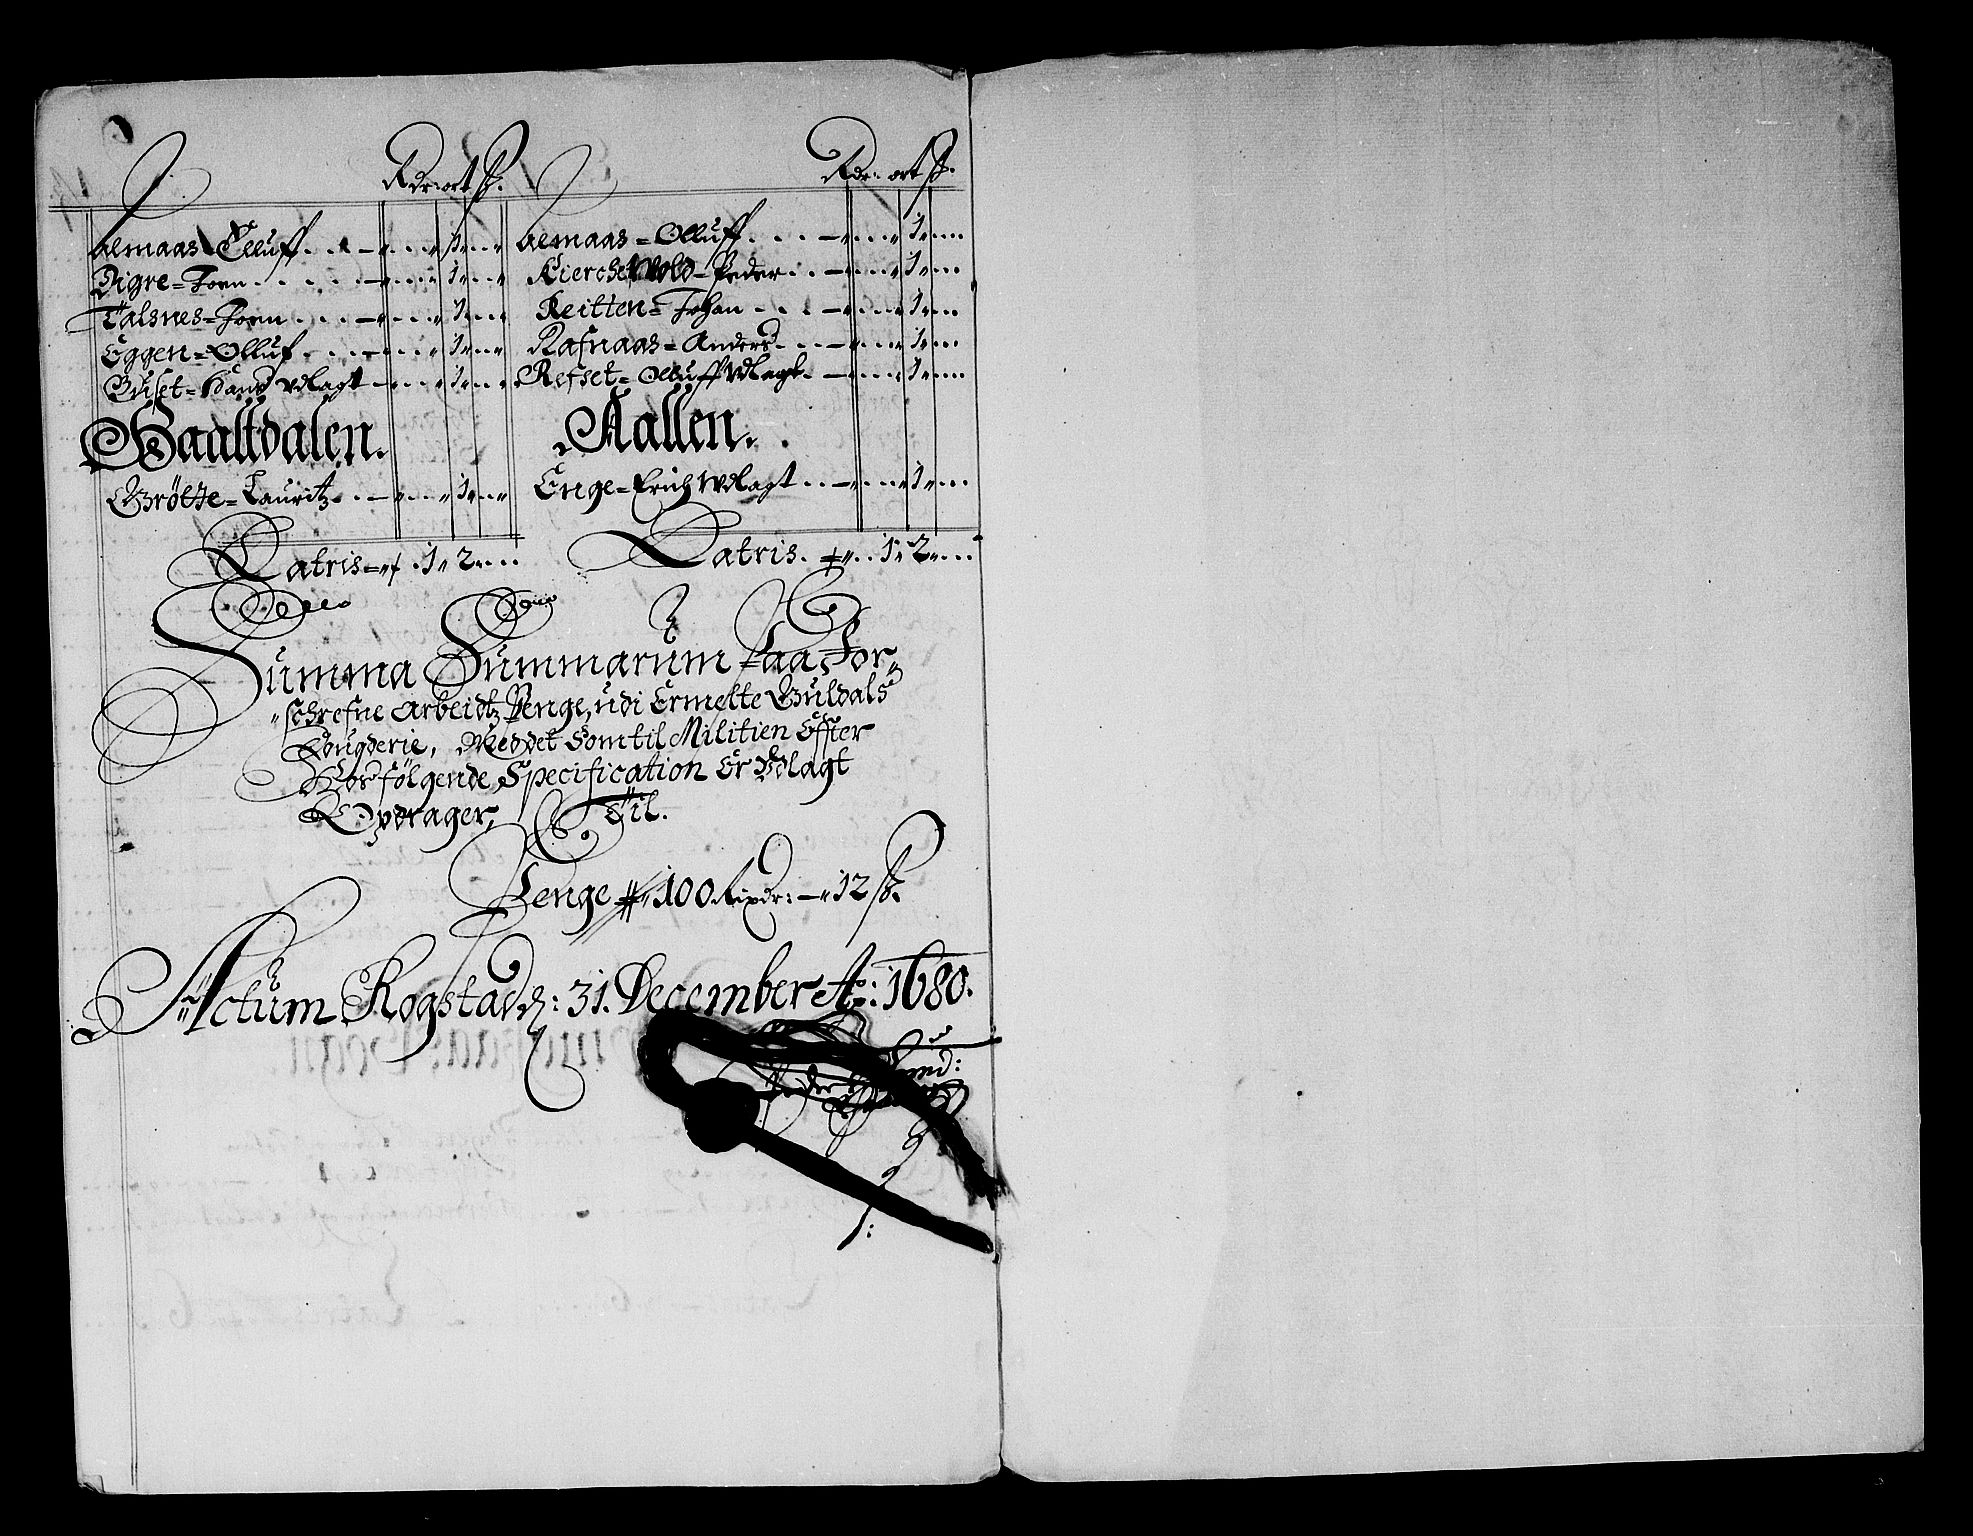 Rdr: ort ß.
Halmaas Elluff - 1
Digre = Joen - 1
Talsnes = Joen - 1
Eggen = Olluf - 1
Buset = Hans Ødlagt - 1
Gaalldalen.
Grötte = Lauritz - 1
Latris = 1 " 2
Rdr: ort ß.
Halmaas = Olluff - 1
Kierchevold = Peder - 1
Reitten = Johan - 1
Rafnaas = Anders - 1
Refset = Olluff Ødlagt - 1
Aallen.
Enge = Erich Ødlagt - 1
Latris. 1 " 2
Summa Summarum Paa For-
schrefne Arbeidtz Penge, udi Ermelte Guldals
Fougderie, Med det Som til Militien Effter
Hosfölgende Specification Er Ødlagt
Opdrager, Til.
Penge 100 Rixdr: - 12 ß.
Actum Rogstad: 31. December Ao: 1680.
Peder